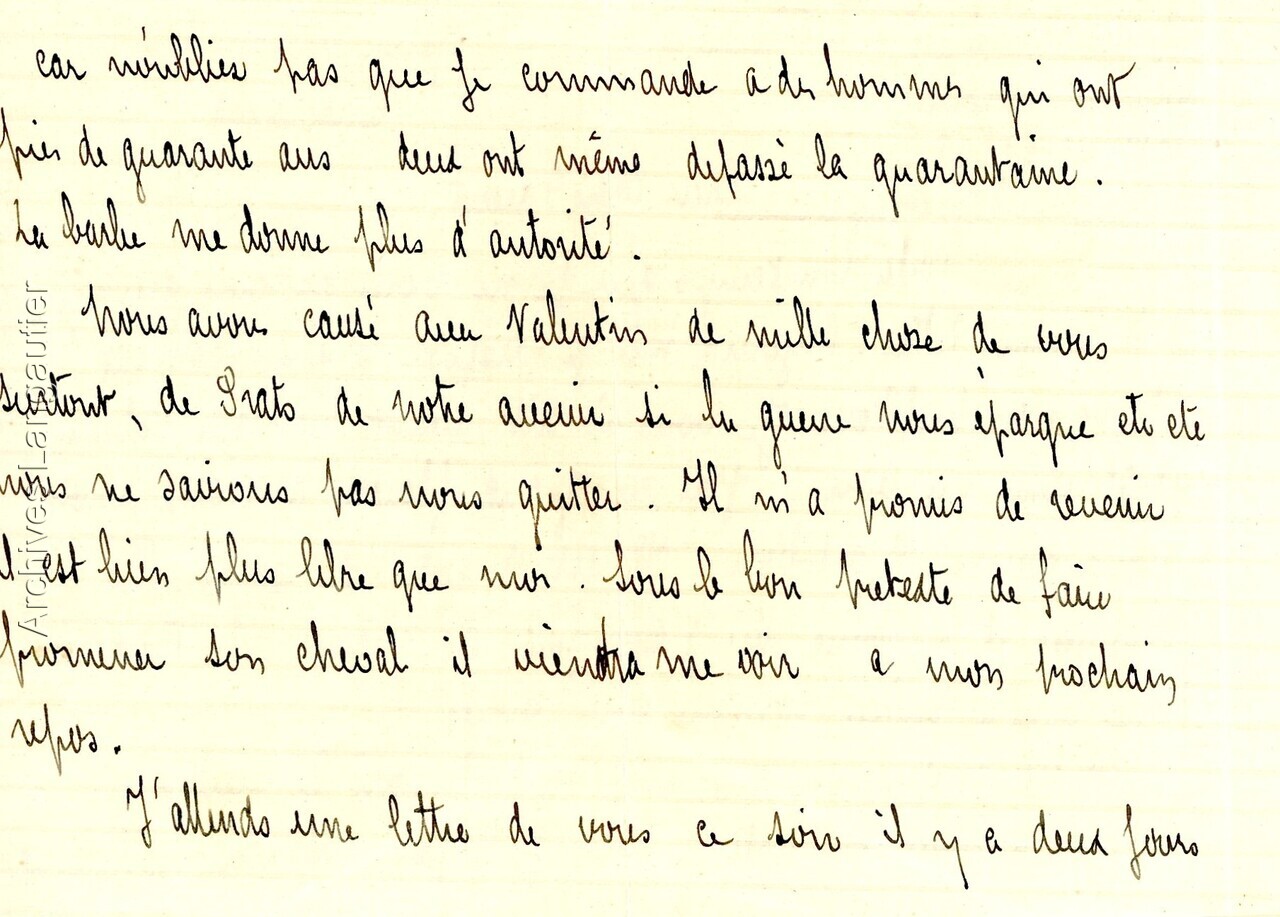 car n'oubliez pas que je commande a des hommes qui ont
près de quarante ans deux ont même depassé la quarantaine.
La barbe me donne plus d'autorité.
Nous avons causé avec Valentin de mille chose de vous
surtout, de Prats de notre avenir si la guerre nous épargne etc etc
nous ne savions pas nous quitter. Il m'a promis de revenir
il est bien plus libre que moi. Sous le bon pretexte de faire
promener son cheval il viendra me voir a mon prochain
repos.
J'attends une lettre de vous ce soir il y a deux jours
Archives Langautier